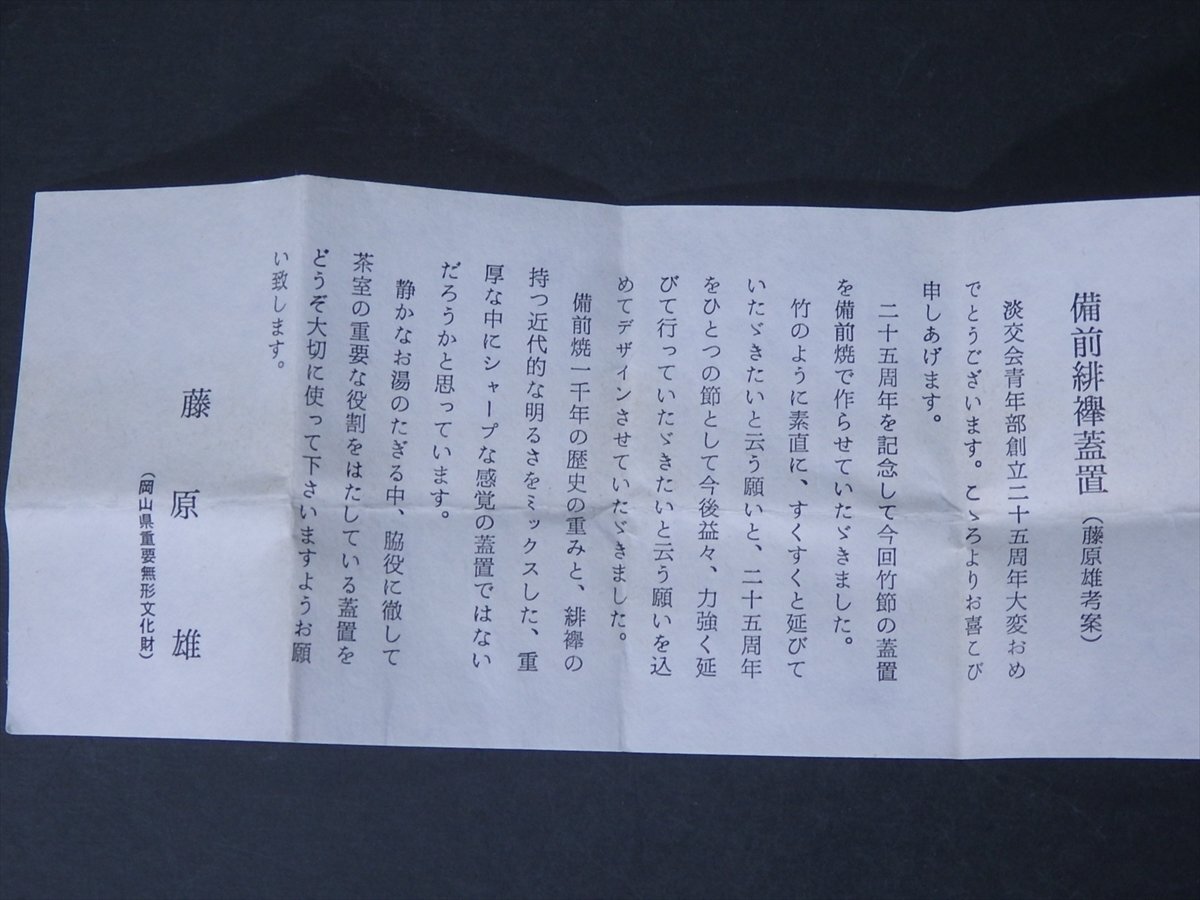 備前緋襷蓋置（藤原雄考案）
淡交会青年部創立二十五周年大変おめ
でとうございます。こゝろよりお喜こび
申しあげます。
二十五周年を記念して今回竹節の蓋置
を備前焼で作らせていたゞきました。
竹のように素直に、すくすくと延びて
いたゞきたいと云う願いと、二十五周年
をひとつの節として今後益々、力強く延
びて行っていたゞきたいと云う願いを込
めてデザインさせていたゞきました。
備前焼一千年の歴史の重みと、緋襷の
持つ近代的な明るさをミックスした、重
厚な中にシャープな感覚の蓋置ではない
だろうかと思っています。
静かなお湯のたぎる中、脇役に徹して
茶室の重要な役割をはたしている蓋置を
どうぞ大切に使って下さいますようお願
い致します。
藤原雄
（岡山県重要無形文化財）